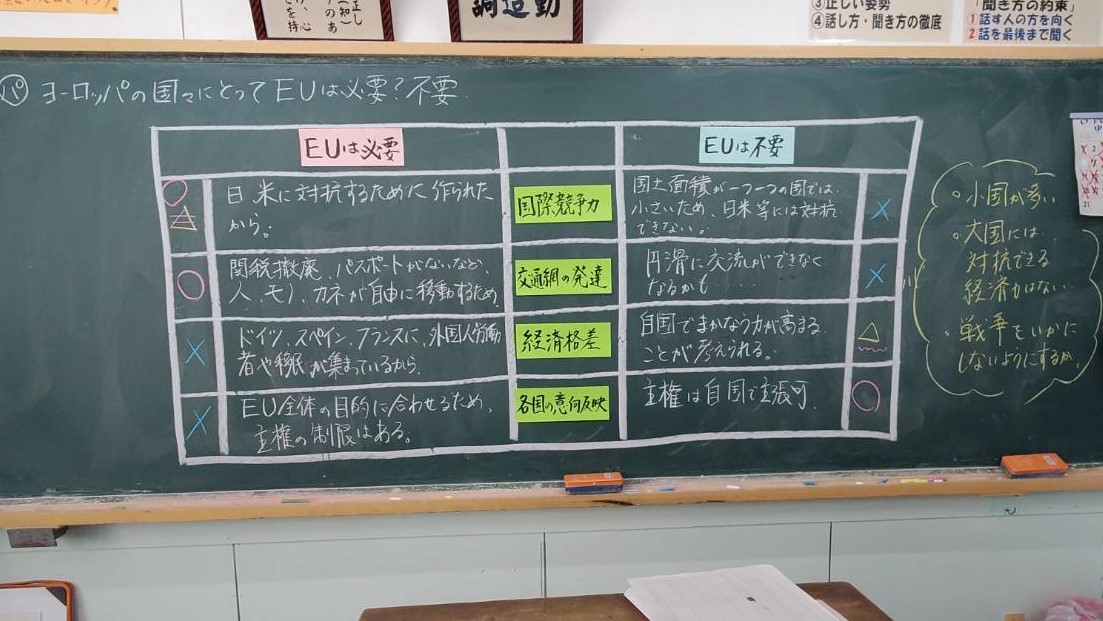 正し
(知)
のあ
け、心
とを持
調造動
③正しい姿勢
④話し方・聞き方の徹底
「聞き方の約束」
1 話す人の方を向く
2 話を最後まで聞く
パ ヨーロッパの国々にとってEUは必要?不要
EUは必要
EUは不要
○
△
日、米に対抗するために作られた
から。
国際競争力
国土面積が一つ一つの国では、
小さいため、日米等には対抗
できない。
×
○
関税撤廃、パスポートがないなど、
人、モノ、カネが自由に移動するため
交通網の発達
円滑に交流ができなく
なるかも....
×
×
ドイツ、スペイン、フランスに、外国人労働
者や移民が集まっているから。
経済格差
自国でまかなう力が高まる
ことが考えられる。
△
×
EU全体の目的に合わせるため、
主権の制限はある。
各国の意向反映
主権は自国で主張可。
○
・小国が多い
・大国には
対抗できる
経済力はない
・戦争をいかに
しないようにするか。